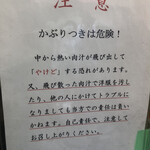 注意
かぶりつきは危険！
中から熱い肉汁が飛び出して
「やけど」する恐れがあります。
又、飛び散った肉汁で洋服を汚し
たり、他の人にかけてトラブルに
なりましても当方での責任は負い
かねます。自己責任で、注意して
お召し上がりください。